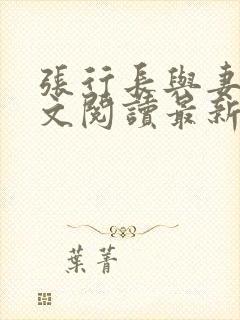 張行長與妻
文閱讀最新
葉菁